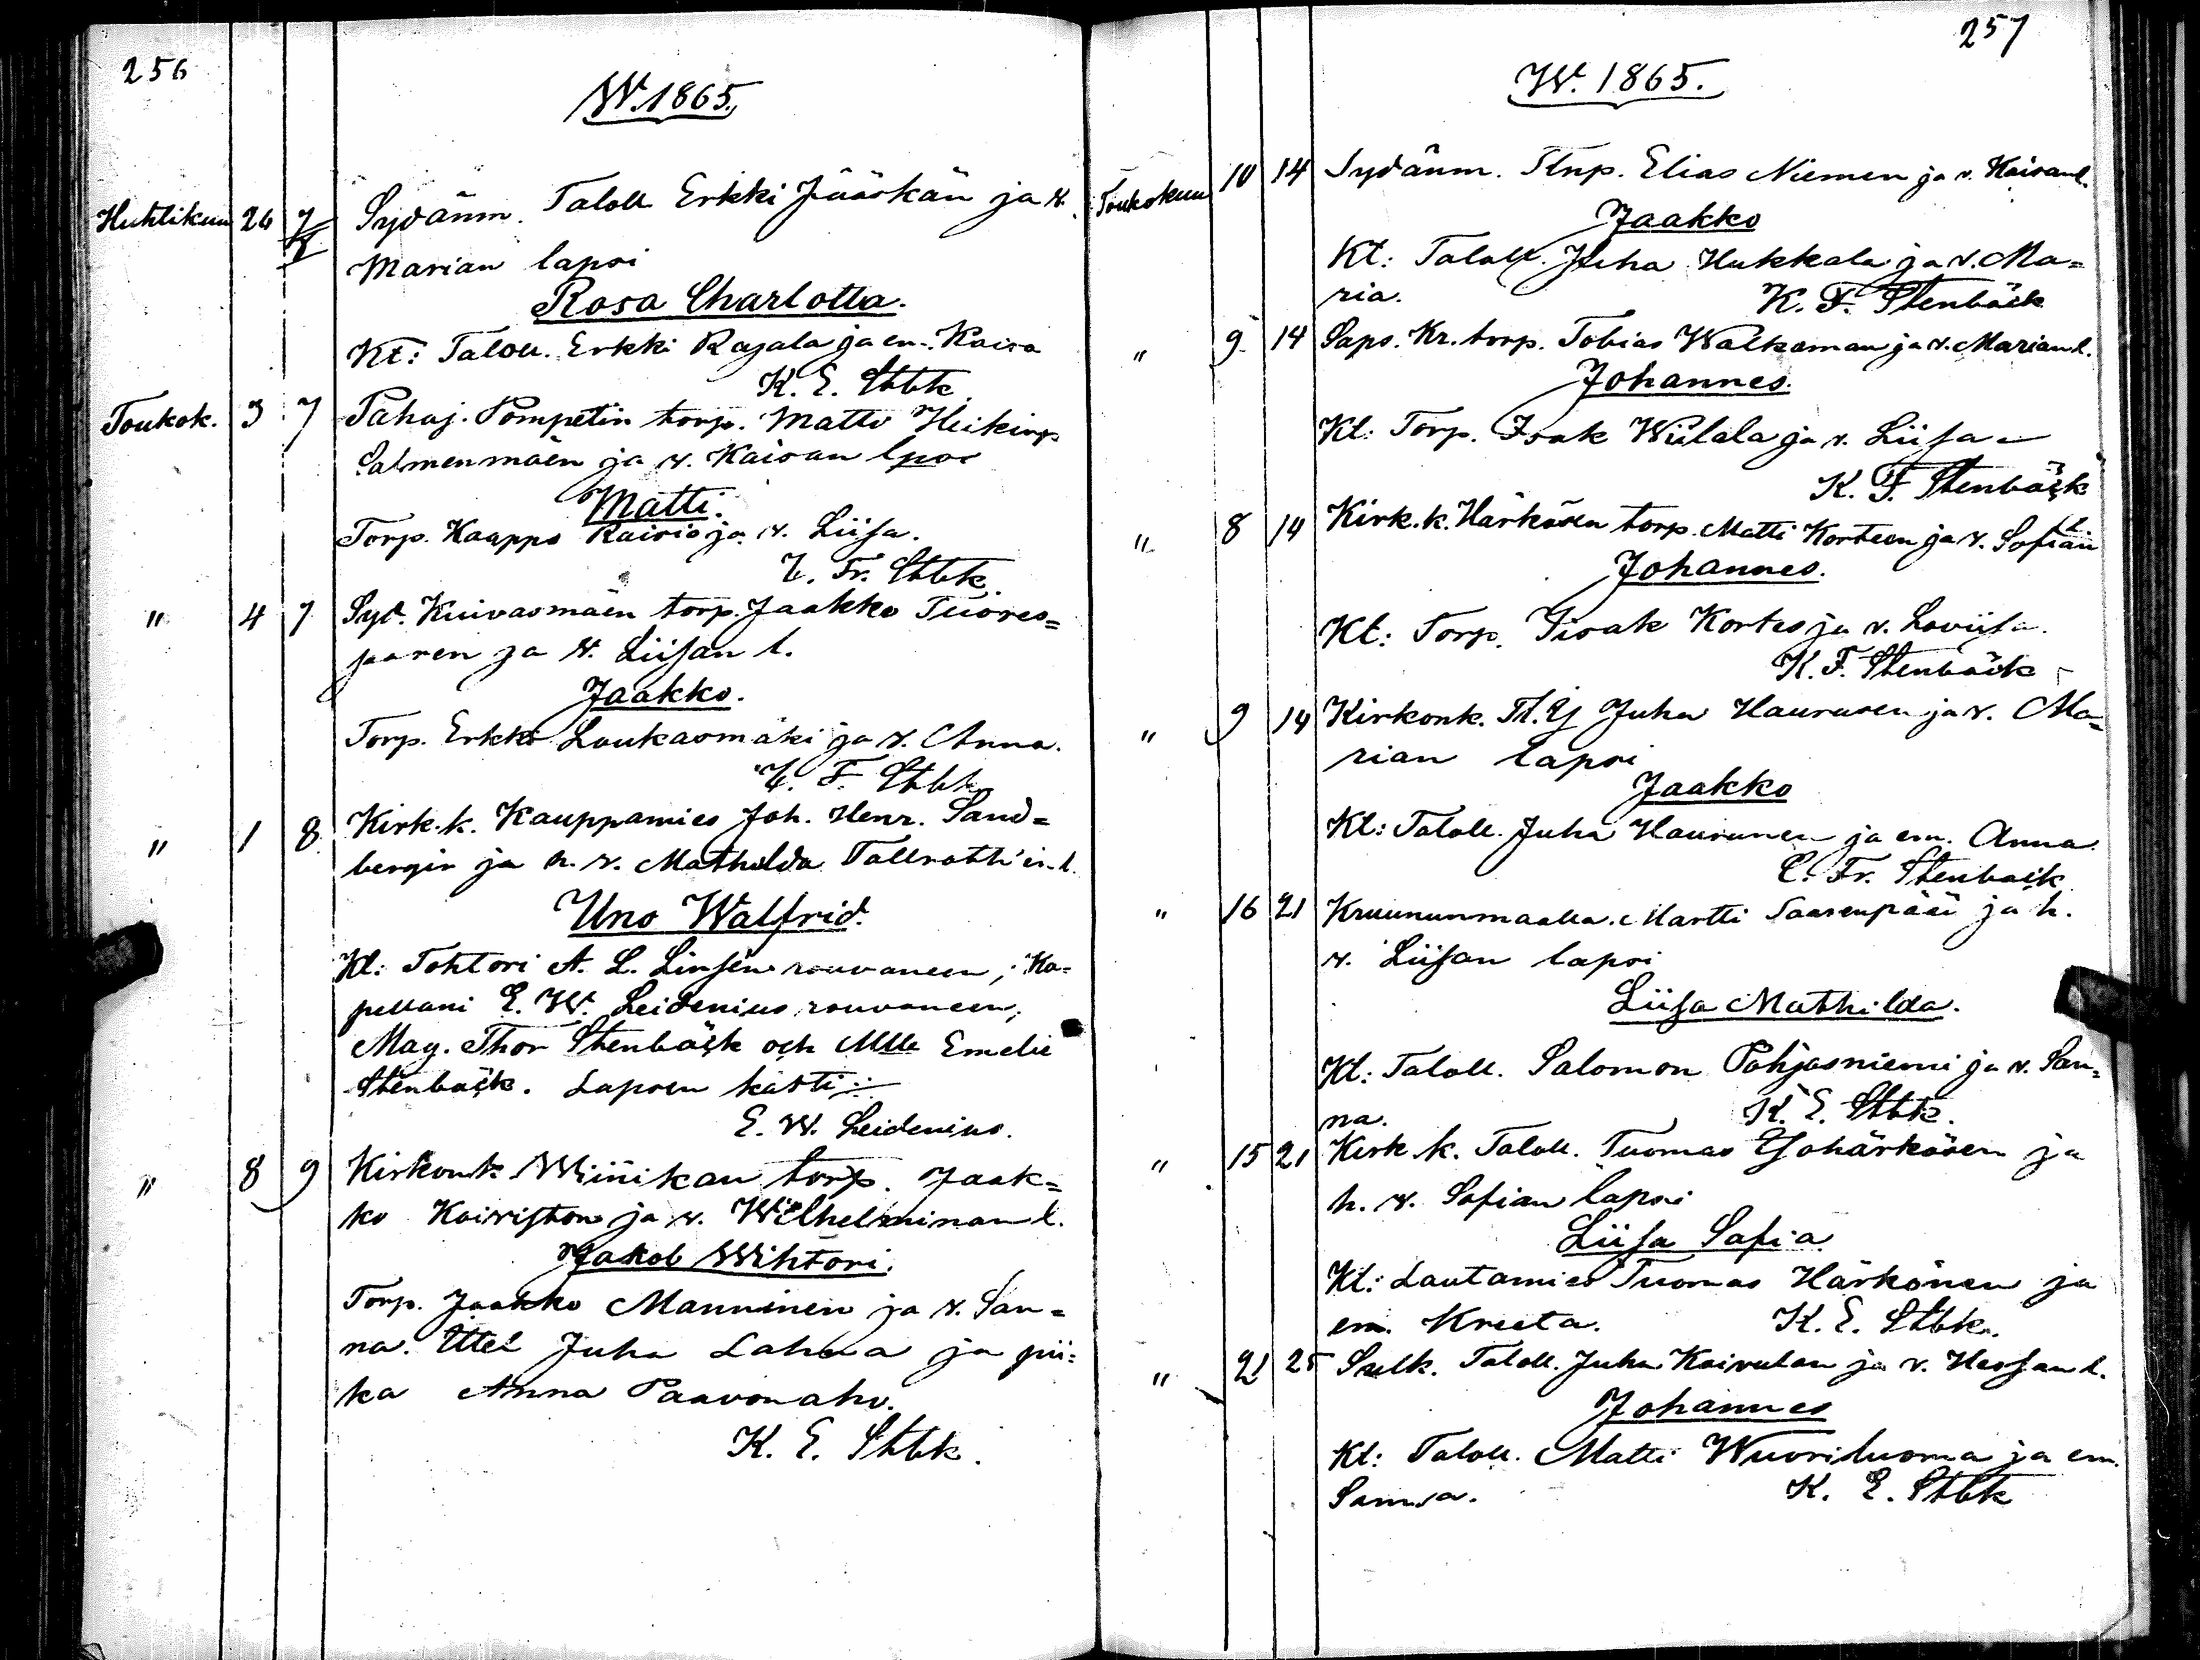 256
W. 1865.
Huhtikuu 26 7/V Sydänm. Taloll. Erkki Jääskän ja v.
Marian lapsi
Rosa Charlotta.
Kt: Taloll. Erkki Rajala ja em. Kaisa
K. E. Stbk
Toukok. 3 7 Pahaj. Pompetin torp. Matts Heikinp
Salmenmäen ja v. Kaisan lpsi
Matti.
Torp. Kaappo Raisio ja v. Liisa.
Fr. Stbk.
" 4 7 Syd. Kuivasmäen torp. Jaakko Tuores=
saaren ja v. Liisan l.
Jaakko.
Torp. Erkki Loukasmäki ja v. Anna.
F. Stbk
" 1 8 Kirk.k. Kauppamies Joh. Henr. Sand=
bergin ja h. v. Mathilda Tallroth'in l.
Uno Walfrid.
Kt: Tohtori A. L. Linsén rouvaneen; Ka=
pellani E. W. Leidenius rouvaneen;
Mag. Thor Stenbäck och Mlle Emelie
Stenbäck. Lapsen kasti:
E. W. Leidenius.
" 8 9 Kirkonk. Winikan torp. Jaak=
ko Koiviston ja v. Wilhelminan l.
Jakob Wihtori.
Torp. Jaakko Manninen ja v. San=
na. Ittel Juha Lahna ja pii=
ka Anna Paavonaho.
K. E. Stbk.
257
W. 1865.
Toukokuu 10 14 Sydänm. Elias Niemen ja v. Kaisan l.
Jaakko
Kt: Taloll. Juha Hukkala ja v. Ma=
ria. K. F. Stenbäck
" 9 14 Saps. Kr. torp. Tobias Walkaman ja v. Marian l.
Johannes.
Kt: Torp. Isak Wiilala ja v. Liisa
K. F. Stenbäck
" 8 14 Kirk.k. Härkösen torp. Matti Korteen ja v. Sofian l.
Johannes.
Kt: Torp. Iisak Kortes ja v. Loviisa.
K. F. Stenbäck
" 9 14 Kirkonk. Tl. Y Juha Haurusen ja v. Ma=
rian lapsi
Jaakko
Kt: Taloll. Juha Haurunen ja em. Anna.
Fr. Stenbäck
" 16 21 Kruununmaalla. Martti Saarenpää ja h.
v. Liisan lapsi
Liisa Mathilda.
Kt: Taloll. Salomon Pohjasniemi ja v. San=
na. K. E. Stbk.
" 15 21 Kirk.k. Taloll. Tuomas Ylohärkösen ja
h. v. Sofian lapsi
Liisa Sofia
Kt: Lautamies Tuomas Härkönen ja
em. Kreeta. K. E. Stbk.
" 21 25 Sulk. Taloll. Juha Koivulan ja v. Hessan l.
Johannes
Kt: Taloll. Matti Wuoriluoma ja em.
Sanna. K. E. Stbk